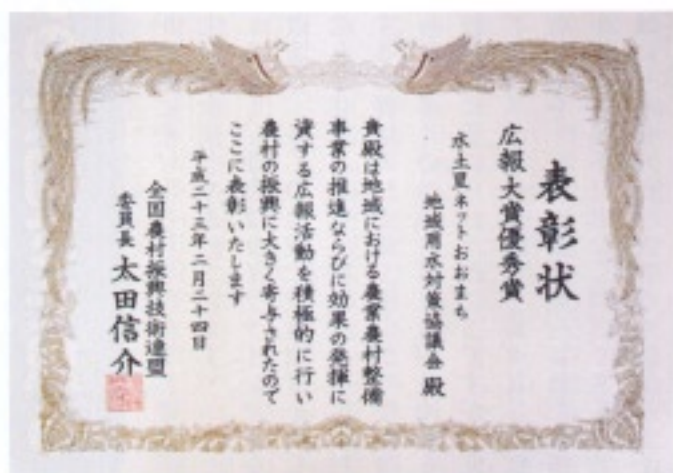 表彰状
広報大賞優秀賞
水土里ネットおおまち
地域用水対策協議会 殿
貴殿は地域における農業農村整備
事業の推進ならびに効果の発揮に
資する広報活動を積極的に行い
農村の振興に大きく寄与されたので
ここに表彰いたします
平成二十三年二月二十四日
全国農村振興技術連盟
委員長 太田信介